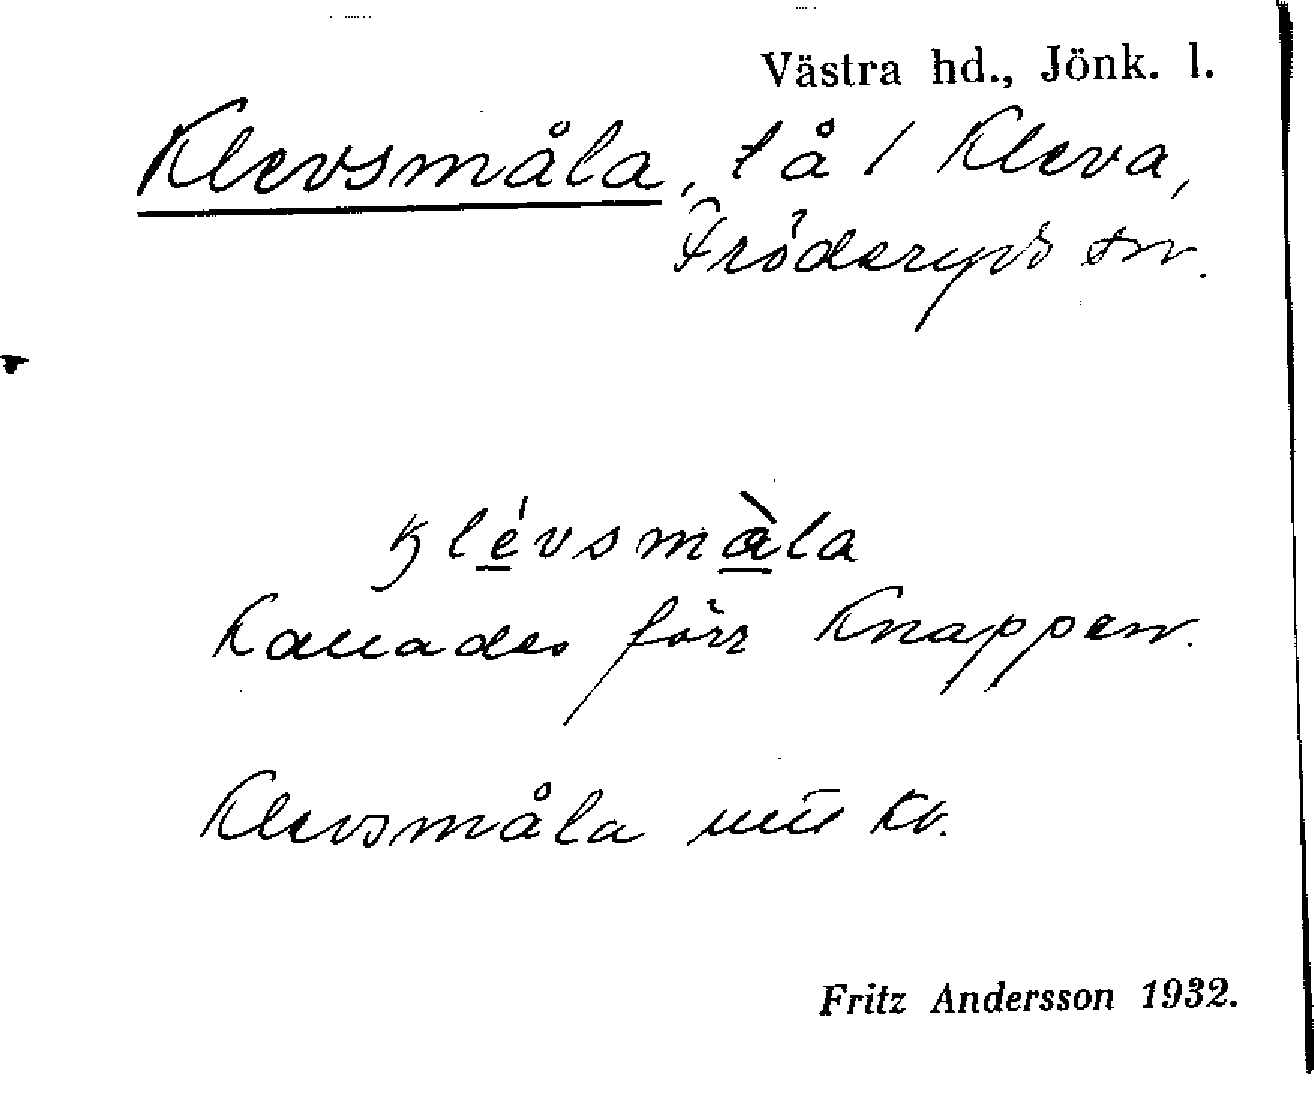 Västra hd., Jönk. l.
Klevsmåla, tå / Kleva,
Fröderyds sn.
klévsmàla
Kallades förr Knappen.
Klevsmåla Kb.
Fritz Andersson 1932.